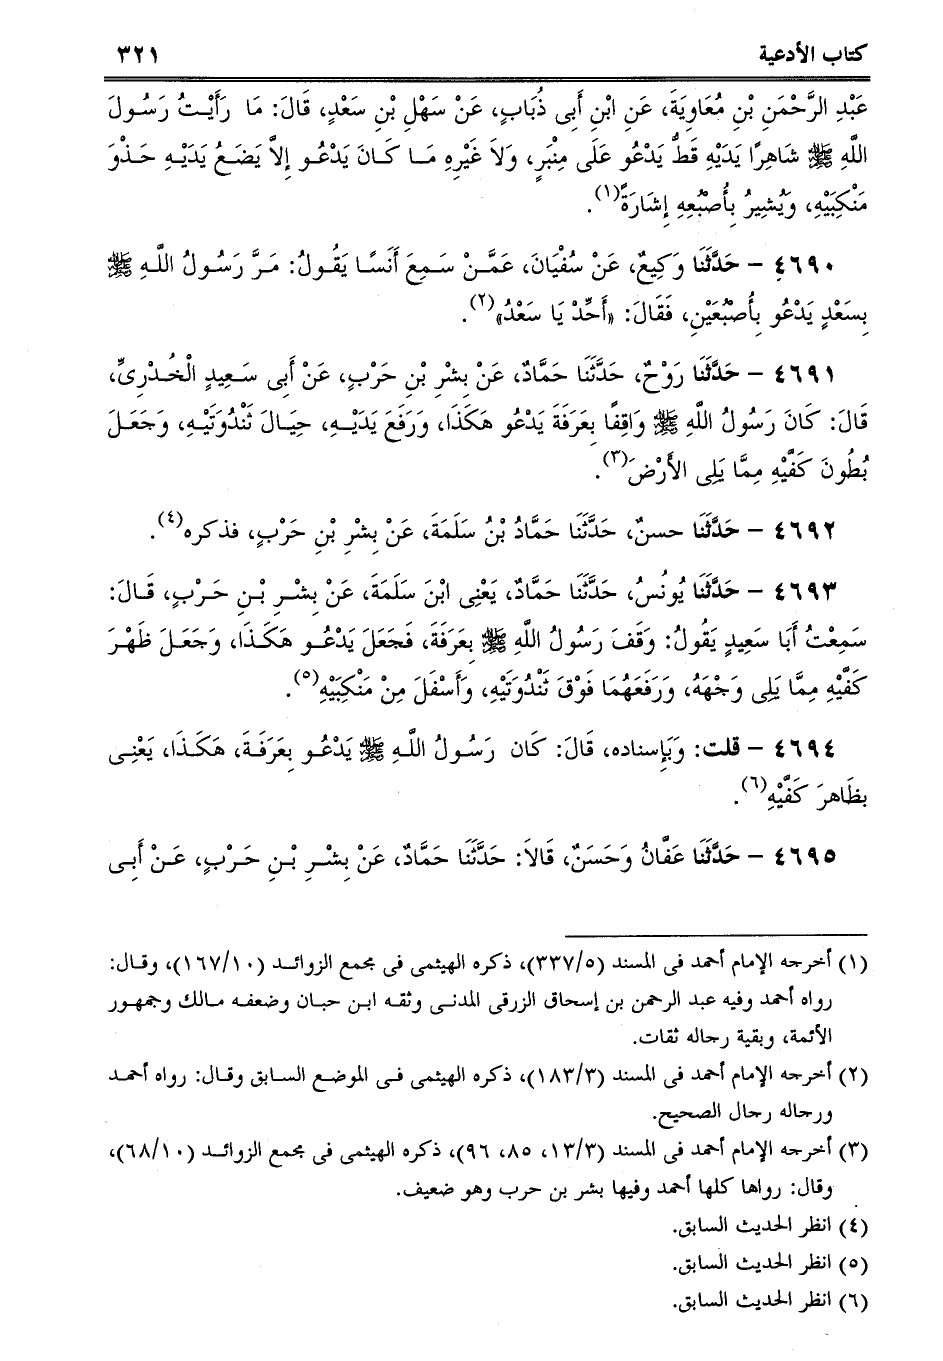 كتاب الأدعية ٣٢١
عَبْدِ الرَّحْمَنِ بْنِ مُعَاوِيَةَ، عَنِ ابْنِ أَبِى ذُبَابٍ، عَنْ سَهْلِ بْنِ سَعْدٍ، قَالَ: مَا رَأَيْتُ رَسُولَ
اللَّهِ ﷺ شَاهِرًا يَدَيْهِ قَطُّ يَدْعُو عَلَى مِنْبَرٍ، وَلاَ غَيْرِهِ مَا كَانَ يَدْعُو إِلاَّ يَضَعُ يَدَيْهِ حَذْوَ
مَنْكِبَيْهِ، وَيُشِيرُ بِأُصْبُعِهِ إِشَارَةً(١).
٤٦٩٠ – حَدَّثَنَا وَكِيعٌ، عَنْ سُفْيَانَ، عَمَّنْ سَمِعَ أَنَسًا يَقُولُ: مَرَّ رَسُولُ اللَّهِ ﷺ
بِسَعْدٍ يَدْعُو بِأُصْبُعَيْنِ، فَقَالَ: «أَحِّدْ يَا سَعْدُ»(٢).
٤٦٩١ – حَدَّثَنَا رَوْحٌ، حَدَّثَنَا حَمَّادٌ، عَنْ بِشْرِ بْنِ حَرْبٍ، عَنْ أَبِى سَعِيدٍ الْخُدْرِىِّ،
قَالَ: كَانَ رَسُولُ اللَّهِ ﷺ وَاقِفًا بِعَرَفَةَ يَدْعُو هَكَذَا، وَرَفَعَ يَدَيْهِ، حِيَالَ ثَنْدُوَتَيْهِ، وَجَعَلَ
بُطُونَ كَفَّيْهِ مِمَّا يَلِى الأَرْضَ(٣).
٤٦٩٢ – حَدَّثَنَا حسنٌ، حَدَّثَنَا حَمَّادُ بْنُ سَلَمَةَ، عَنْ بِشْرِ بْنِ حَرْبٍ، فذكره(٤).
٤٦٩٣ – حَدَّثَنَا يُونُسُ، حَدَّثَنَا حَمَّادٌ، يَعْنِى ابْنَ سَلَمَةَ، عَنْ بِشْرِ بْنِ حَرْبٍ، قَالَ:
سَمِعْتُ أَبَا سَعِيدٍ يَقُولُ: وَقَفَ رَسُولُ اللَّهِ ﷺ بِعَرَفَةَ، فَجَعَلَ يَدْعُو هَكَذَا، وَجَعَلَ ظَهْرَ
كَفَّيْهِ مِمَّا يَلِى وَجْهَهُ، وَرَفَعَهُمَا فَوْقَ ثَنْدُوَتَيْهِ، وَأَسْفَلَ مِنْ مَنْكِبَيْهِ(٥).
٤٦٩٤ – قلت: وَبَإِسناده، قَالَ: كَان رَسُولُ اللَّهِ ﷺ يَدْعُو بِعَرَفَةَ، هَكَذَا، يَعْنِى
بِظَاهِرَ كَفَّيْهِ(٦).
٤٦٩٥ – حَدَّثَنَا عَفَّانُ وَحَسَنٌ، قَالاَ: حَدَّثَنَا حَمَّادٌ، عَنْ بِشْرِ بْنِ حَرْبٍ، عَنْ أَبِى
(١) أخرجه الإمام أحمد فى المسند (٣٣٧/٥)، ذكره الهيثمى فى مجمع الزوائد (١٦٧/١٠)، وقال:
رواه أحمد وفيه عبد الرحمن بن إسحاق الزرقى المدنى وثقه ابن حبان وضعفه مالك وجمهور
الأئمة، وبقية رجاله ثقات.
(٢) أخرجه الإمام أحمد فى المسند (١٨٣/٣)، ذكره الهيثمى فى الموضع السابق وقال: رواه أحمد
ورجاله رجال الصحيح.
(٣) أخرجه الإمام أحمد فى المسند (١٣/٣، ٨٥، ٩٦)، ذكره الهيثمى فى مجمع الزوائد (٦٨/١٠)،
وقال: رواها كلها أحمد وفيها بشر بن حرب وهو ضعيف.
(٤) انظر الحديث السابق.
(٥) انظر الحديث السابق.
(٦) انظر الحديث السابق.